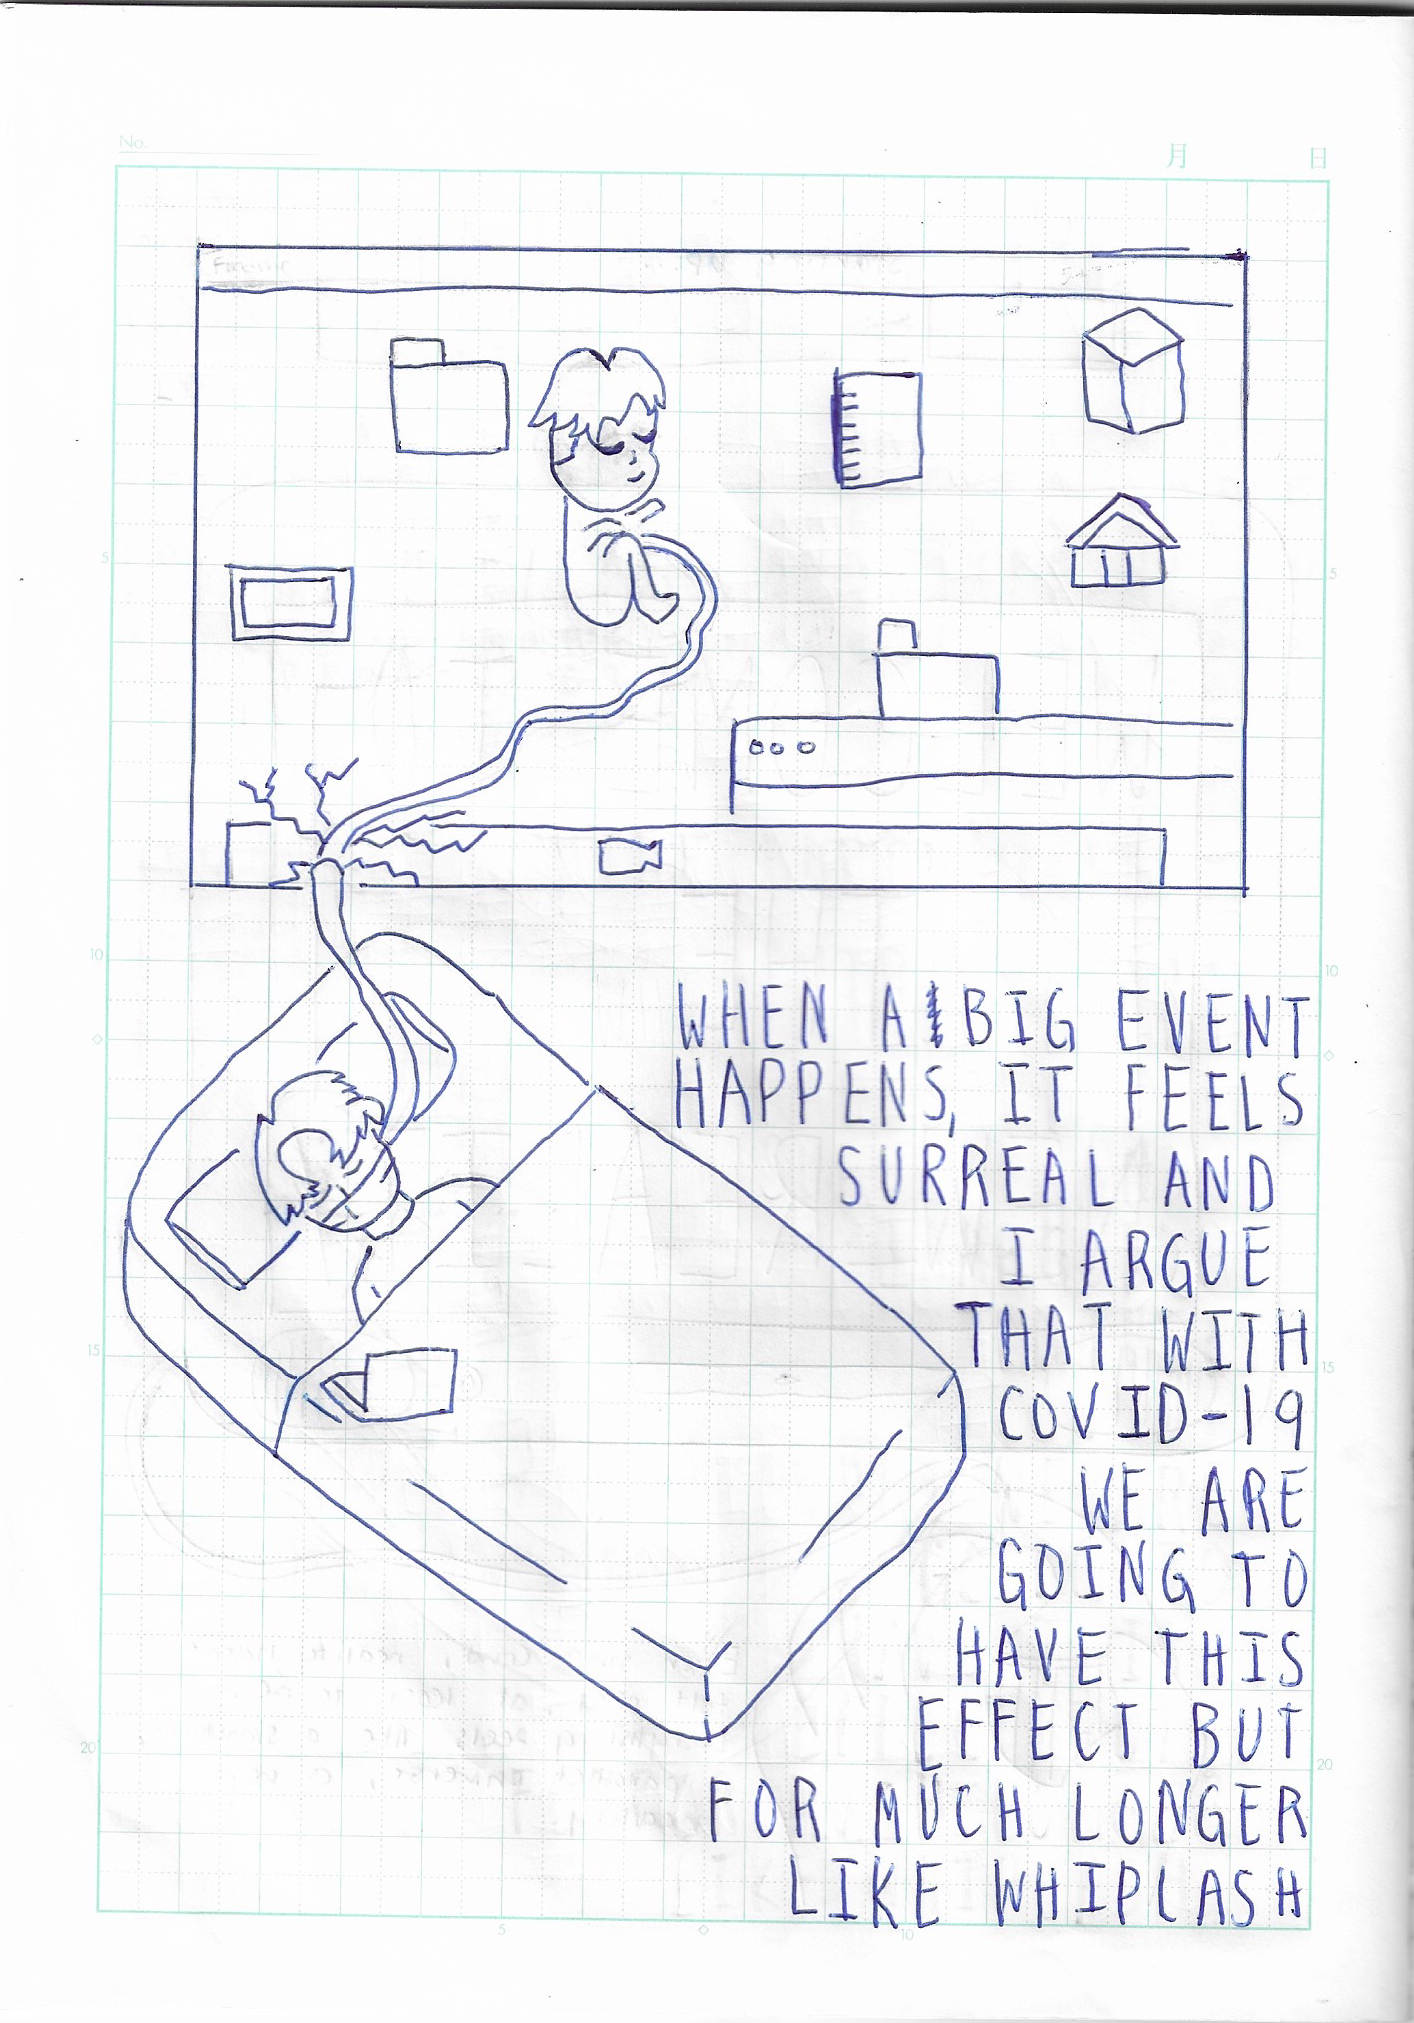 No.
月 日
WHEN A BIG EVENT
HAPPENS, IT FEELS
SURREAL AND
I ARGUE
THAT WITH
COVID-19
WE ARE
GOING TO
HAVE THIS
EFFECT BUT
FOR MUCH LONGER
LIKE WHIPLASH
5
5
10
10
15
15
20
20
5
10